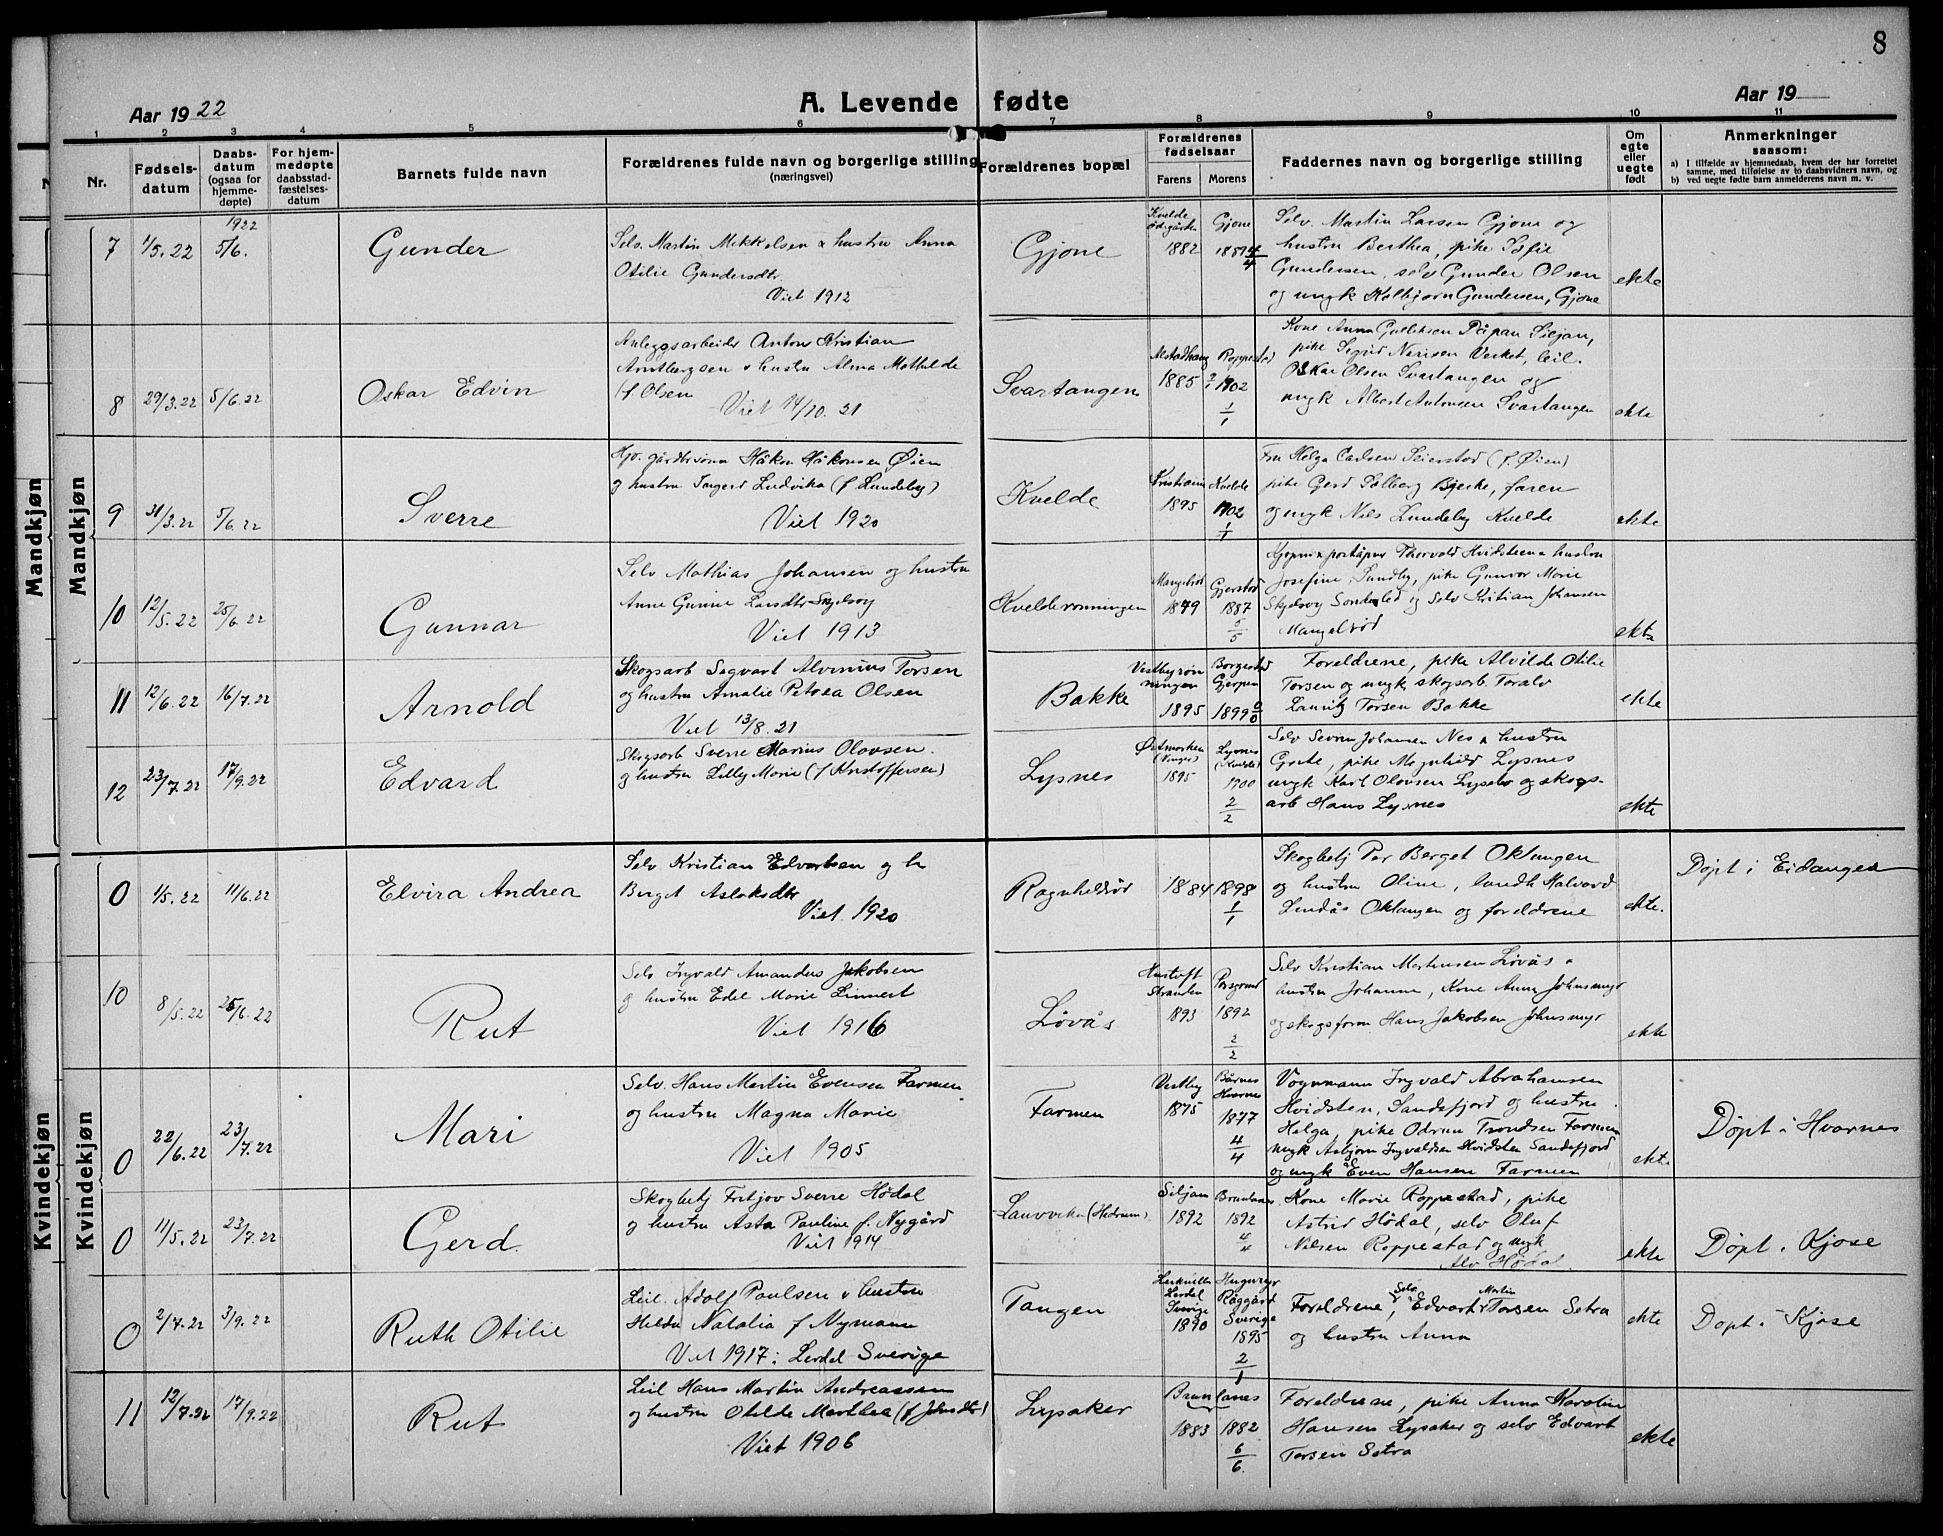 8
Aar 1922
A. Levende fødte
Aar 19
1 2 3 4 5 6 7 8 9 10 11
Nr.
Fødsels-
datum
Daabs-
datum
(ogsaa for
hjemme-
døpte)
For hjem-
medøpte
daabsstad-
fæstelses-
datum
Barnets fulde navn
Forældrenes fulde navn og borgerlige stilling
(næringsvei)
Forældrenes bopæl
Forældrenes
fødselsaar
Farens Morens
Faddernes navn og borgerlige stilling
Om
egte
eller
uegte
født
Anmerkninger
saasom:
a) I tilfælde av hjemmedaab, hvem der har forrettet
samme, med tilføielse av to daabsvidners navn, og
b) ved uegte fødte barn anmelderens navn m. v.
Mandkjøn
Mandkjøn
7
1/5.22
1922
5/6.
Gunder
Selv. Martin Mikkelsen & hustru Anna
Otilie Gundersdtr.
Viet 1912
Gjone
Kvelde
ødegården
1882
Gjone
4/4
Selv. Martin Larsen Gjone og
hustru Berthea, pike Sofie
Gundersen, selv Gunder Olsen
og ungk Kolbjørn Gundersen, Gjone
ekte
8
29/3.22
5/6.22
Oskar Edvin
Anleggsarbeider Anton Kristian
Arntbergsen & hustru Alma Mathilde
(f Olsen
Viet 14/10.21
Svartangen
1885
Roppestad
1902
1/1
Kone Anna Gulliksen Siljan,
pike Sigrid Nirisen Verket, leil.
Oskar Olsen Svartangen og
ungk Albert Antonsen Svartangen
ekte
9
31/3.22
5/6.22
Sverre
gårdbr.sønn Håkon Håkonsen Øien
og hustru Ingerd Ludvika (f Lundeby)
Viet 1920
Kvelde
Kristiania
1895
Kvelde
1902
1/1
Fru Helga Carlsen Seierstad (f. Øien)
pike Gerd Solberg Bjerke, faren
og ungk Nils Lundeby Kvelde
ekte
10
12/5.22
25/6.22
Gunnar
Selv Mathias Johansen og hustru
Anne Gurine Larsdtr Skjelsvog
Viet 1913
Kvelderønningen
Mangelrød
1879
Gjerstad
1887
5/5
Thorvald Hvidsteen & hustru
Josefine, Sundby, pike Gunvor Marie
Sønderled og Selv Kristian Johansen
Mangelrød
ekte
11
12/6.22
16/7.22
Arnold
Skogsarb Sigvart Alvinius Torsen
og hustru Amalie Petrea Olsen
Viet 13/8.21
Bakke
Vestbyrøn
ningen
1895
Borgestad
Gjerpen
1899 0/0
Foreldrene, pike Alvilde Otilie
Torsen og ungk skogsarb. Toralv
Lauritz Torsen Bakke
ekte
12
23/7.22
17/9.22
Edvard
Skogsarb Sverre Marius Olavsen.
og hustru Lilly Marie (f Kristoffersen)
Lysnes
Østmorken
1895
Lysnes
(Kvelde)
1900
2/2
Selv Severin Johansen Nes & hustru
Grete, pike Magnhild Lysnes
ungk Karl Olavsen Lysebo og skogs-
arb Hans Lysnes
ekte
Kvindekjøn
Kvindekjøn
0
1/5.22
11/6.22
Elvira Andrea
Selv. Kristian Edvartsen og h
Berget Aslaksdtr
Viet. 1920
Ragnhelrød
1884
1898
1/1
Skogbetj Per Berget Oklungen
og hustru Oline, landh Halvard
Lindås Oklungen og foreldrene
ekte.
Døpt i Eidanger
10
8/5.22
25/6.22
Rut
Selv Ingvald Amandus Jakobsen
og hustru Edel Marie Linnert
Viet 1916
Løvås
Hustoft
Stranden
1893
Porsgrund
1892
2/2
Selv Kristian Martinsen Løvås &
hustru Johanne, Kone Anna Johnsmyr
og skogsform Hans Jakobsen Johnsmyr
ekte
0
22/6.22
23/7.22
Mari
Selv. Hans Martin Evensen Farmen
og hustru Magna Marie
Viet 1905
Farmen
Vestby
1875
Bårnes
Hvarnes
1877
4/4
Vognmann Ingvald Abrahamsen
Hvidsten, Sandefjord og hustru
Helga, pike Odrun Trondsen Farmen
ungk Asbjørn Ingvaldsen Hvidsten Sandefjord
og ungk Even Hansen Farmen
ekte
Døpt i Hvarnes
0
11/5.22
23/7.22
Gerd
Skogbetj Fritjov Sverre Hødal
og hustru Asta Pauline f. Nygård
Viet 1914
Lauvvika (Hedrum)
Siljan
1892
Brunlanes
1892
4/4
Kone Marie Roppestad, pike
Astrid Hødal, selv Oluf
Nilsen Roppestad og ungk
Alv Hødal.
ekte
Døpt i Kjose
0
2/7.22
3/9.22
Ruth Otilie
Leil. Adolf Paulsen & hustru
Hilda Natalia f Nymann
Viet 1917 i Lerdal Sverige
Tangen
Lerdal
Sverige
1890
Råggård
Sverige
1895
2/1
Foreldrene, Selv Edvart Martin Torsen Setra
og hustru Anna
ekte
Døpt i Kjose
11
12/7.22
17/9.22
Rut
Leil Hans Martin Andreassen
og hustru Otilde Marthea (f Johnsdtr)
Viet 1906
Lysaker
Brunlanes
1883
1882
6/6.
Foreldrene, pike Anna Karoline
Hansen Lysaker og selv Edvart
Torsen Setra
ekte